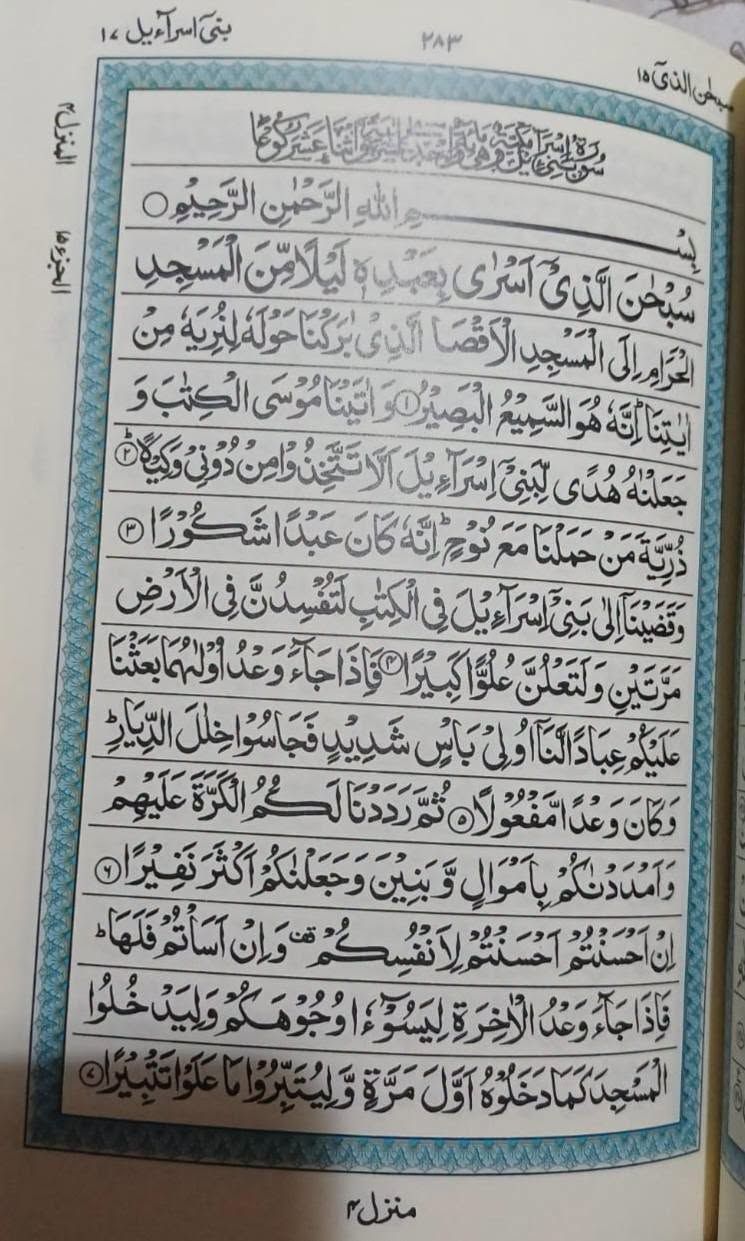 سبحٰن الذیٓ ۱۵
۲۸۳
بنیٓ اسرآءیل ۱۷
المنزل۴
الجزء۱۵
سُوْرَةُ بَنِیْٓ اِسْرَآءِیْلَ مَكِّیَّةٌ وَّهِیَ مِائَةٌ وَّاِحْدٰى عَشْرَةَ اٰیَةً وَّاثْنَا عَشَرَ رُكُوْعًا
بِسْمِ اللّٰهِ الرَّحْمٰنِ الرَّحِیْمِ
سُبْحٰنَ الَّذِیْٓ اَسْرٰى بِعَبْدِهٖ لَیْلًا مِّنَ الْمَسْجِدِ
الْحَرَامِ اِلَى الْمَسْجِدِ الْاَقْصَا الَّذِیْ بٰرَكْنَا حَوْلَهٗ لِنُرِیَهٗ مِنْ
اٰیٰتِنَا ؕ اِنَّهٗ هُوَ السَّمِیْعُ الْبَصِیْرُ ۱ وَاٰتَیْنَا مُوْسَى الْكِتٰبَ وَ
جَعَلْنٰهُ هُدًى لِّبَنِیْٓ اِسْرَآءِیْلَ اَلَّا تَتَّخِذُوْا مِنْ دُوْنِیْ وَكِیْلًا ؕ ۲
ذُرِّیَّةَ مَنْ حَمَلْنَا مَعَ نُوْحٍ ؕ اِنَّهٗ كَانَ عَبْدًا شَكُوْرًا ۳
وَقَضَیْنَاۤ اِلٰى بَنِیْٓ اِسْرَآءِیْلَ فِی الْكِتٰبِ لَتُفْسِدُنَّ فِی الْاَرْضِ
مَرَّتَیْنِ وَلَتَعْلُنَّ عُلُوًّا كَبِیْرًا ۴ فَاِذَا جَآءَ وَعْدُ اُوْلٰىهُمَا بَعَثْنَا
عَلَیْكُمْ عِبَادًا لَّنَاۤ اُولِیْ بَاْسٍ شَدِیْدٍ فَجَاسُوْا خِلٰلَ الدِّیَارِ ؕ
وَكَانَ وَعْدًا مَّفْعُوْلًا ۵ ثُمَّ رَدَدْنَا لَكُمُ الْكَرَّةَ عَلَیْهِمْ
وَاَمْدَدْنٰكُمْ بِاَمْوَالٍ وَّبَنِیْنَ وَجَعَلْنٰكُمْ اَكْثَرَ نَفِیْرًا ۶
اِنْ اَحْسَنْتُمْ اَحْسَنْتُمْ لِاَنْفُسِكُمْ ۫ وَاِنْ اَسَاْتُمْ فَلَهَا ؕ
فَاِذَا جَآءَ وَعْدُ الْاٰخِرَةِ لِیَسُوْٓءٗا وُجُوْهَكُمْ وَلِیَدْخُلُوا
الْمَسْجِدَ كَمَا دَخَلُوْهُ اَوَّلَ مَرَّةٍ وَّلِیُتَبِّرُوْا مَا عَلَوْا تَتْبِیْرًا ۷
منزل۴